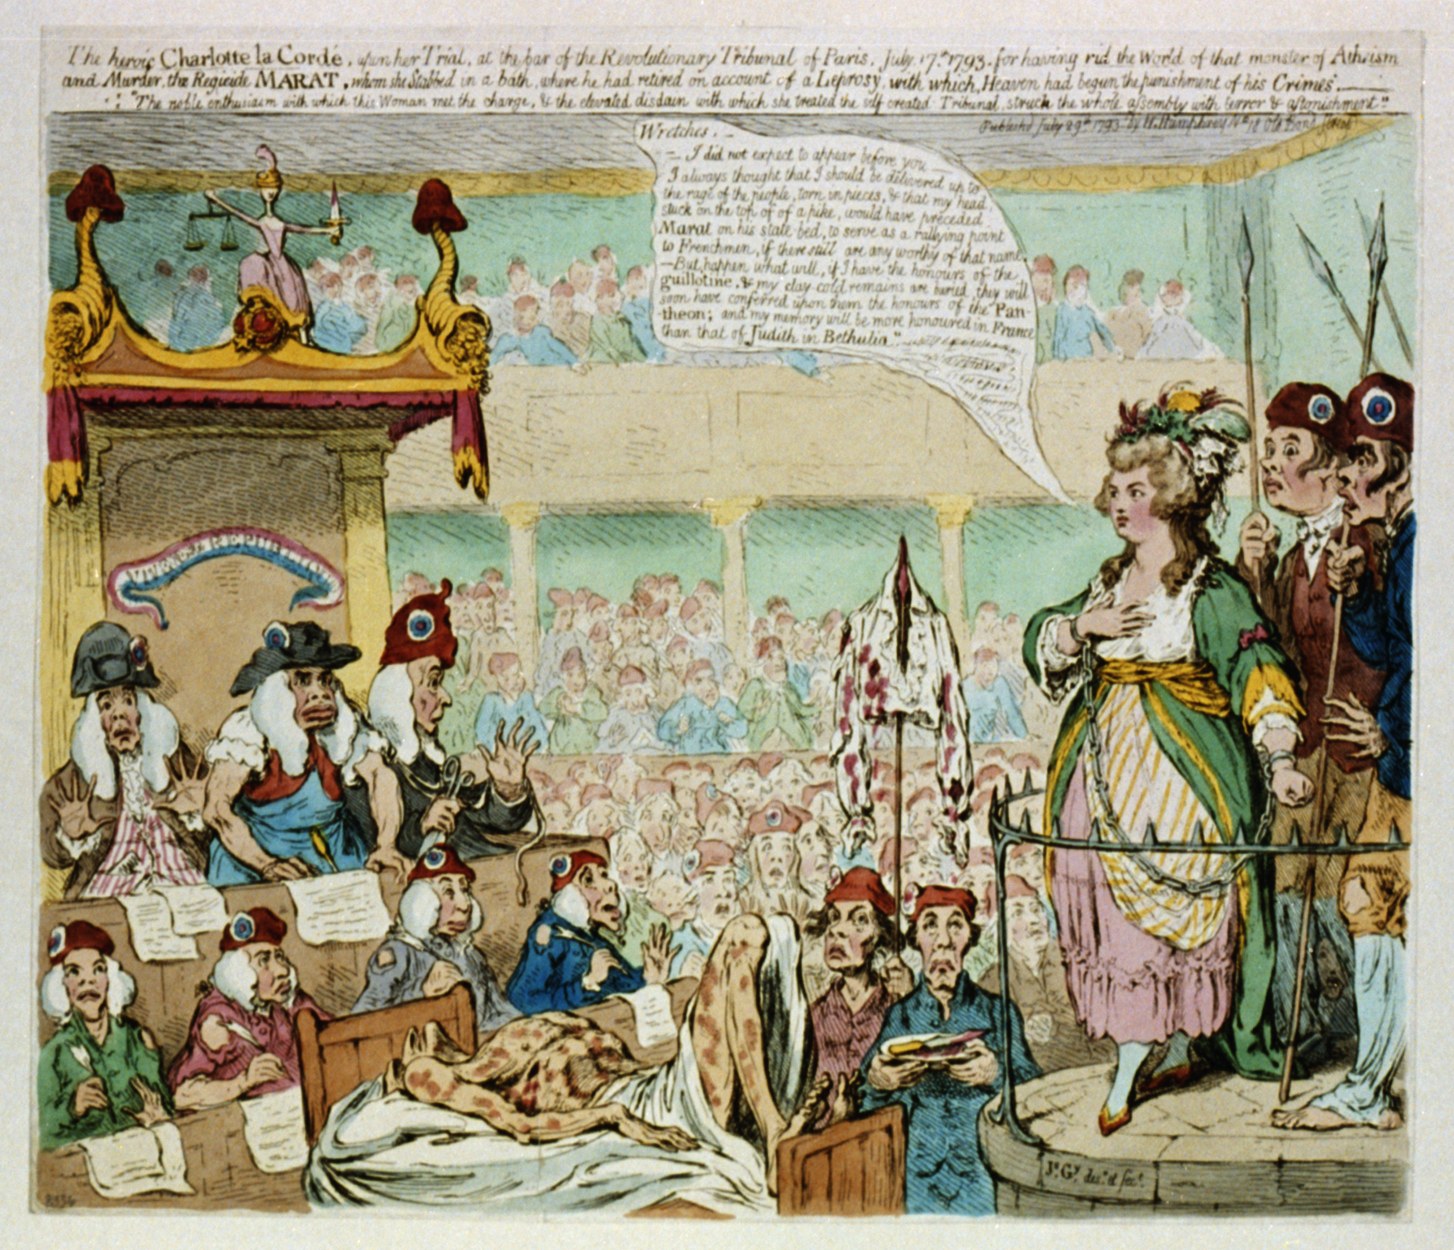 The heroic Charlotte la Cordé, upon her Trial, at the bar of the Revolutionary Tribunal of Paris, July 17th 1793. for having rid the World of that monster of Atheism
and Murder, the Regicide MARAT, whom she Stabbed in a bath, where he had retired on account of a Leprosy, with which, Heaven had begun the punishment of his Crimes.
"The noble enthusiasm with which this Woman met the charge, & the elevated disdain with which she treated the self created Tribunal, struck the whole assembly with terror & astonishment."
Publish'd July 29th 1793 by H. Humphrey No 18 Old Bond Street
Wretches. —
— I did not expect to appear before you —
I always thought that I should be delivered up to
the rage of the people, torn in pieces, & that my head
stuck on the top of of a pike, would have preceded
Marat on his state-bed, to serve as a rallying point
to Frenchmen, if there still are any worthy of that name.
— But, happen what will, if I have the honours of the
guillotine, & my clay-cold remains are buried, they will
soon have conferred upon them the honours of the "Pan-
-theon; and my memory will be more honoured in France
than that of Judith in Bethulia."
VIVE LA REPUBLIQUE
Js. Gy. des. et fect.